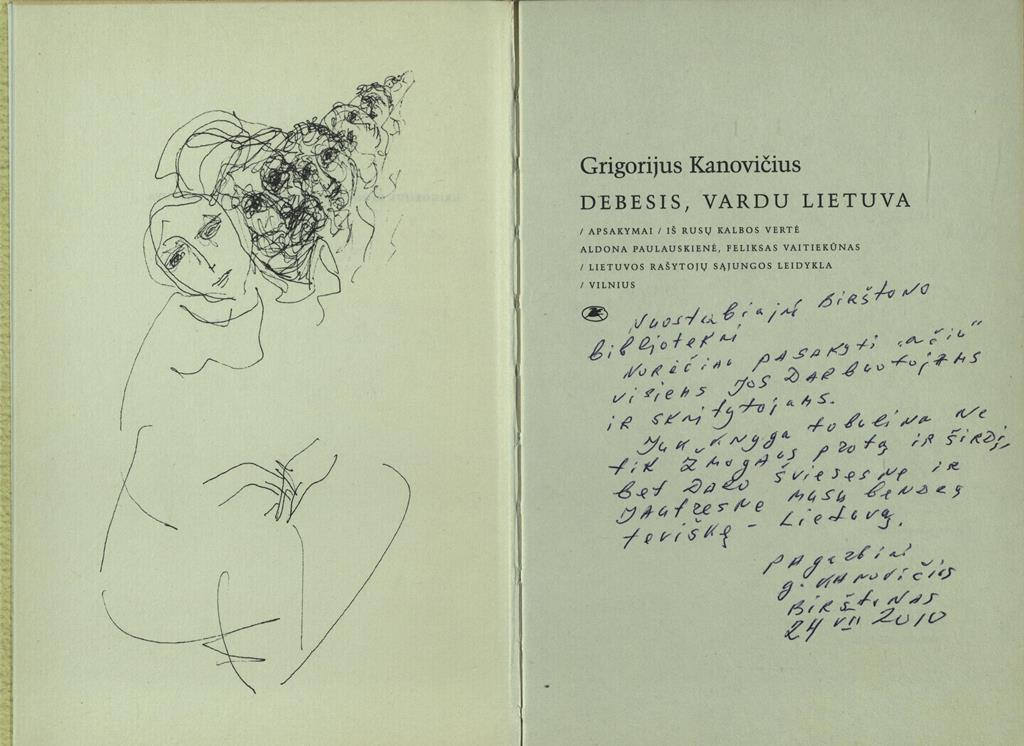 Grigorijus Kanovičius
DEBESIS, VARDU LIETUVA
/ APSAKYMAI / IŠ RUSŲ KALBOS VERTĖ
ALDONA PAULAUSKIENĖ, FELIKSAS VAITIEKŪNAS
/ LIETUVOS RAŠYTOJŲ SĄJUNGOS LEIDYKLA
/ VILNIUS
Nuostabiajai Birštono
bibliotekai
Norėčiau pasakyti „ačiū"
visiems jos darbuotojams
ir skaitytojams.
Juk knyga tobulina ne
tik žmogaus protą ir širdį,
bet daro šviesesnę ir
jautresnę mūsų bendrą
tėviškę - Lietuvą.
Pagarbiai
G. Kanovičius
Birštonas
24 VII 2010